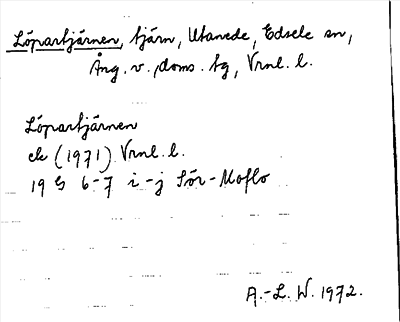 Löpartjärnen, tjärn, Utanede, Edsele sn,
Ång. v. doms. tg, Vrnl. l.
Löpartjärnen
ek (1971) Vrnl. l.
19 G 6-7 i-j Sör-Moflo
A.-L. W. 1972.